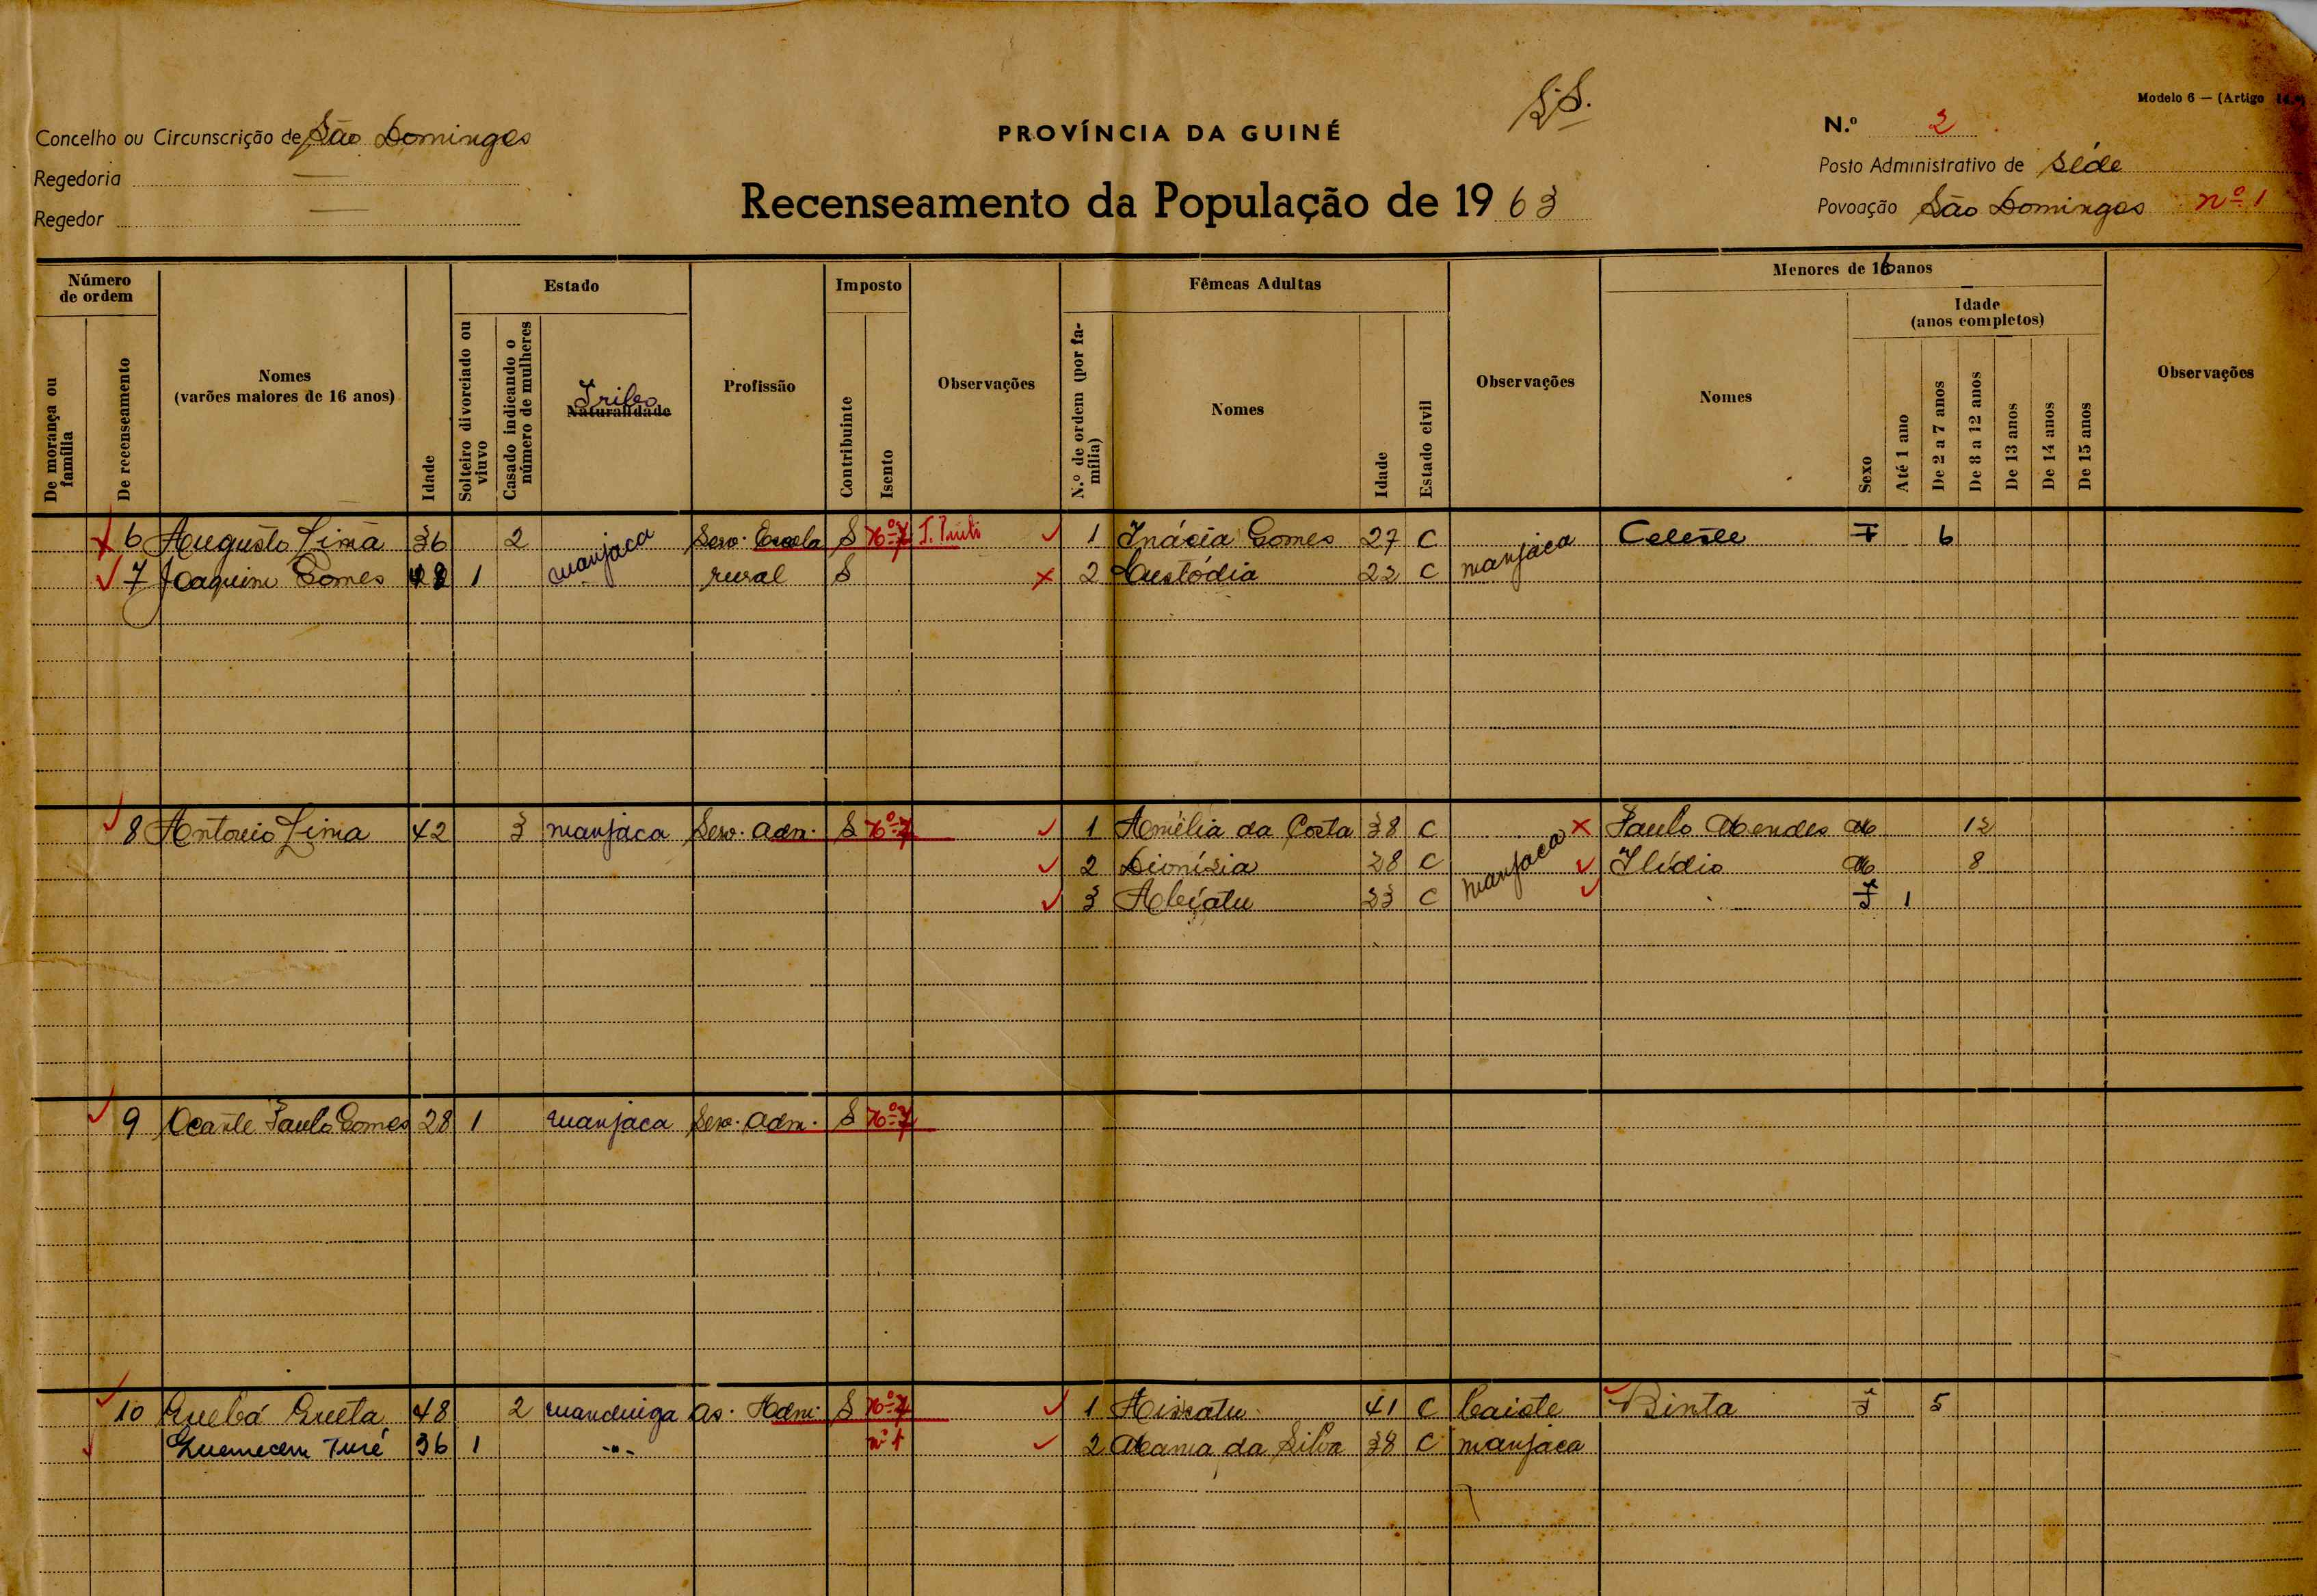 S.S.
Modelo 6 — (Artigo 14.º)
Concelho ou Circunscrição de São Domingos
PROVÍNCIA DA GUINÉ
N.º 2
Regedoria —
Posto Administrativo de Séde
Regedor —
Recenseamento da População de 1963
Povoação São Domingos nº 1
Número de ordem
De morança ou família
De recenseamento
Nomes
(varões maiores de 16 anos)
Idade
Estado
Solteiro divorciado ou viuvo
Casado indicando o número de mulheres
Tribo
Naturalidade
Profissão
Imposto
Contribuinte
Isento
Observações
Fêmeas Adultas
N.º de ordem (por família)
Nomes
Idade
Estado civil
Observações
Menores de 16 anos
Nomes
Idade
(anos completos)
Sexo
Até 1 ano
De 2 a 7 anos
De 8 a 12 anos
De 13 anos
De 14 anos
De 15 anos
Observações
6 Augusto Lima 36 2 manjaca Serv. Escola S nº 7 1 Inácia Gomes 27 C manjaca Celeste F 6
7 Joaquim Gomes 1 rural S 2 Custódia 22 C
8 Antonio Lima 42 3 manjaca Serv. Adm. S nº 7 1 Amélia da Costa 38 C manjaca Paulo Mendes M 12
2 Dionísia 28 C Ilídio M 8
3 23 C F 1
9 Ocante Paulo Gomes 28 1 manjaca Serv. Adm. S nº 7
10 Quebá 48 2 mandinga As. Adm. S nº 7 1 Aissatu 41 C Caiote Binta F 5
Turé 36 1 -"- nº 1 2 Mama da Silva 38 C manjaca